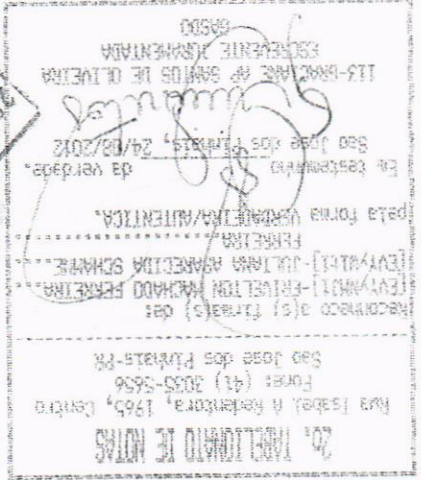 2o. TABELIONATO DE NOTAS
Rua Isabel A Redentora, 1965, Centro
Fone: (41) 3035-5656
Sao Jose dos Pinhais-PR
Reconheco a(s) firma(s) de:
-ERIVELTON MACHADO FERREIRA....
-JULIANA APARECIDA SCHAMNE....
FERREIRA..............................
pela forma VERDADEIRA/AUTENTICA.
Em testemunho da verdade.
Sao Jose dos Pinhais, 24/08/2012
113-GRACIANE AP SANTOS DE OLIVEIRA
GASDO
ESCREVENTE JURAMENTADA